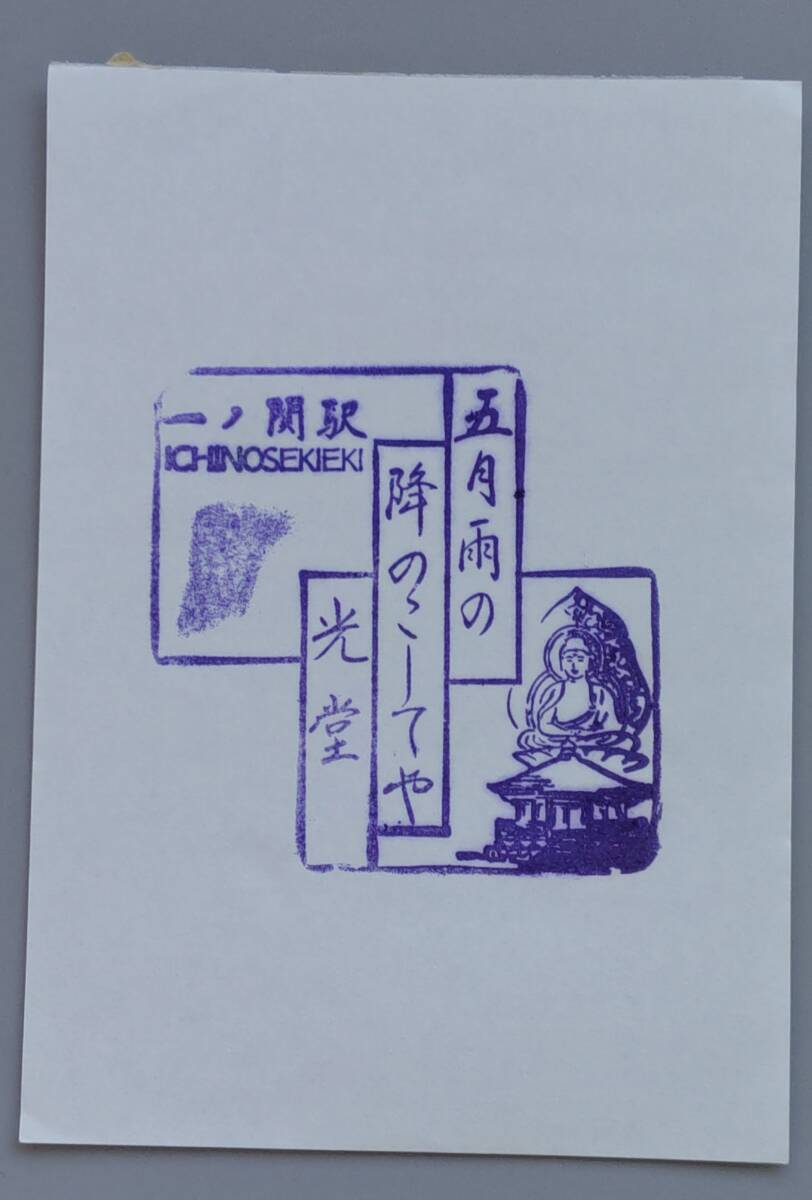 一ノ関駅
ICHINOSEKIEKI
五月雨の
降のこしてや
光堂